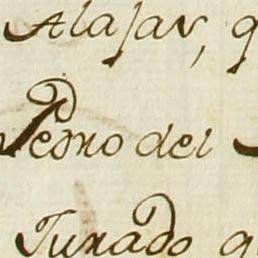 Alajar, q
Pedro del
Jurado q